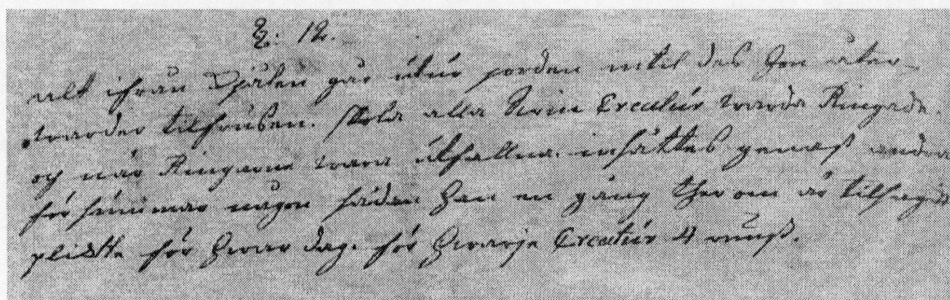 §: 12.
alt ifrån Tjälen går utur jorden intil des hon åter-
warder tilfrusen. skola alla Swin Creatur warda Ringade.
och när Ringarne wara utfallna. insättes genast andra
försummar någon sådan han en gång ther om är tilsagd
plickte för hwar dag. för hwarje Creatur 4 runst.